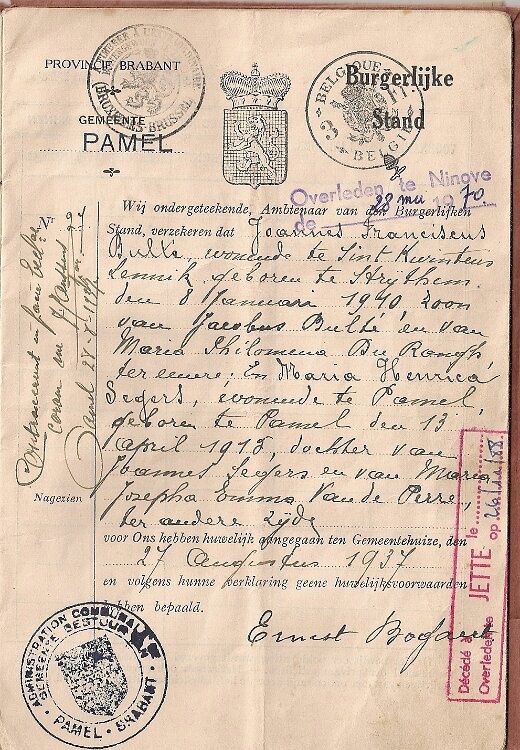 PROVINCIE BRABANT
GEMEENTE
PAMEL
BELGIQUE
BELGIË
Burgerlijke
Stand
Overleden te Ninove
de 28 mei 1970.
Nr
Wij ondergeteekende, Ambtenaar van den Burgerlijken
Stand, verzekeren dat Joannes Franciscus
Bulté, wonende te Sint Kwintens
Lennik, geboren te Strijthem
den 8 Januari 1910, zoon
van Jacobus Bulté en van
Maria Philomena De
ter eenere; En Maria Henrica
Segers, wonende te Pamel,
geboren te Pamel den 13
april 1915, dochter van
Joannes Segers en van Maria
Josepha Emma Van de Perre,
ter andere zijde
voor Ons hebben huwelijk aangegaan ten Gemeentehuize, den
27 Augustus 1937
en volgens hunne verklaring geene huwelijksvoorwaarden
hebben bepaald.
Ernest Bogaert
Nagezien
Pamel 28-8-1937
Décédé à JETTE le
Overleden te op
ADMINISTRATION COMMUNALE
GEMEENTE BESTUUR
PAMEL - BRABANT